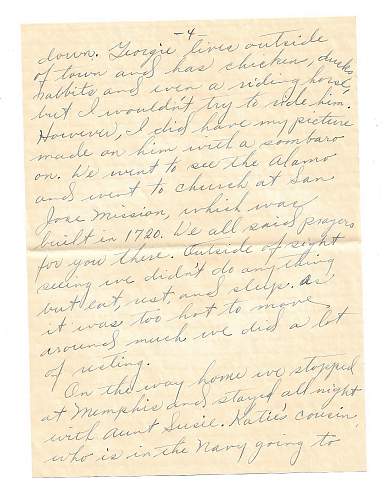 -4-
down. Georgie lives outside
of town and has chicken, ducks
rabbits and even a riding horse,
but I wouldn't try to ride him.
However, I did have my picture
made on him with a sombaro
on. We went to see the Alamo
and went to church at San
Jose Mission, which was
built in 1720. We all said prayers
for you there. Outside of sight
seeing we didn't do anything
but eat, rest, and sleep. As
it was too hot to move
around much we did a lot
of resting.
On the way home we stopped
at Memphis and stayed all night
with Aunt Susie. Katie's cousin
who is in the Navy going to